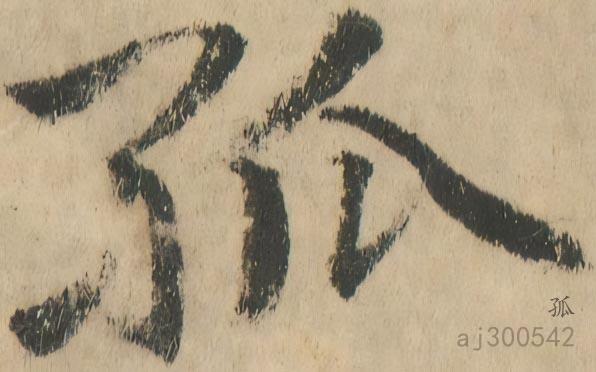 孤
孤
aj300542